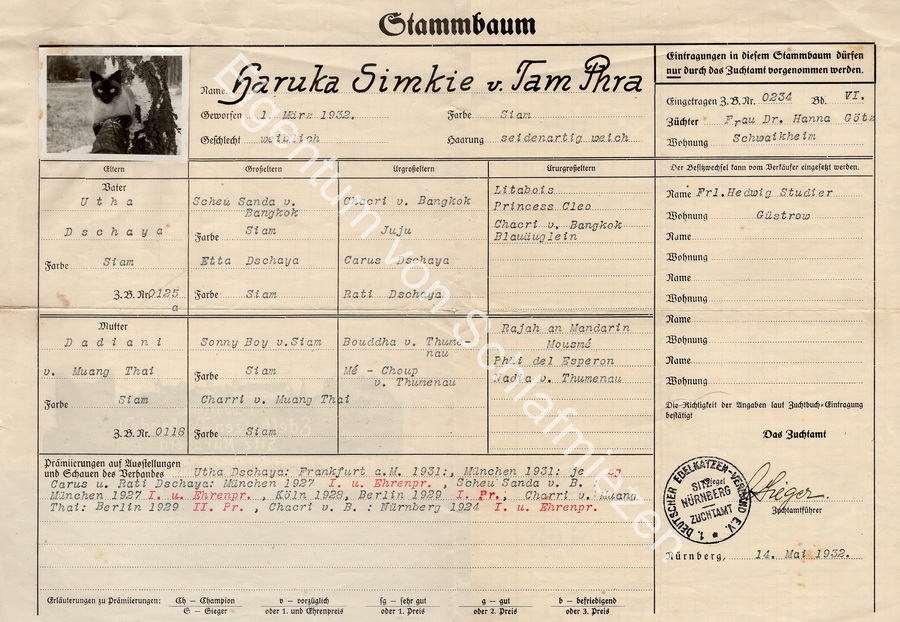 Stammbaum
Name Haruka Simkie v. Tam Phra
Geworfen 1. März 1932. Farbe Siam
Geschlecht weiblich Haarung seidenartig weich
Eintragungen in diesem Stammbaum dürfen
nur durch das Zuchtamt vorgenommen werden.
Eingetragen Z. B. Nr. 0234 Bd. VI.
Züchter Frau Dr. Hanna Götz
Wohnung Schwaikheim
Eltern Großeltern Urgroßeltern Ururgroßeltern
Vater
Utha
Dschaya
Farbe Siam
Z. B. Nr. 0125
a
Scheu Sanda v.
Bangkok
Farbe Siam
Etta Dschaya
Farbe Siam
Chacri v. Bangkok
Juju
Carus Dschaya
Rati Dschaya
Litabois
Princess Cleo
Chacri v. Bangkok
Blauäuglein
Mutter
Dadiani
v. Muang Thai
Farbe Siam
Z. B. Nr. 0118
Sonny Boy v. Siam
Farbe Siam
Charri v. Muang Thai
Farbe Siam
Bouddha v. Thume-
nau
Mé - Choup
v. Thumenau
Rajah an Mandarin
Mousmé
Phli del Esperon
Nadia v. Thumenau
Der Besitzwechsel kann vom Verkäufer eingesetzt werden.
Name Frl. Hedwig Studier
Wohnung Güstrow
Name
Wohnung
Name
Wohnung
Name
Wohnung
Name
Wohnung
Die Richtigkeit der Angaben laut Zuchtbuch-Eintragung
bestätigt
Das Zuchtamt
Prämiierungen auf Ausstellungen
und Schauen des Verbandes Utha Dschaya: Frankfurt a.M. 1931:, München 1931: je sg
Carus u. Rati Dschaya: München 1927 I. u. Ehrenpr. , Scheu Sanda v. B.
München 1927 I. u. Ehrenpr. , Köln 1928, Berlin 1929 I. Pr.; Charri v. Muang
Thai: Berlin 1929 II. Pr. , Chacri v. B. : Nürnberg 1924 I. u. Ehrenpr.
1. DEUTSCHER EDELKATZEN-VERBAND E.V.
Siegel
SITZ
NÜRNBERG
ZUCHTAMT
Zuchtamtführer
Nürnberg, 14. Mai 1932.
Erläuterungen zu Prämiierungen: Ch – Champion v – vorzüglich sg – sehr gut g – gut b – befriedigend
S – Sieger oder 1. und Ehrenpreis oder 1. Preis oder 2. Preis oder 3. Preis
Eigentum von Schlafmiezen